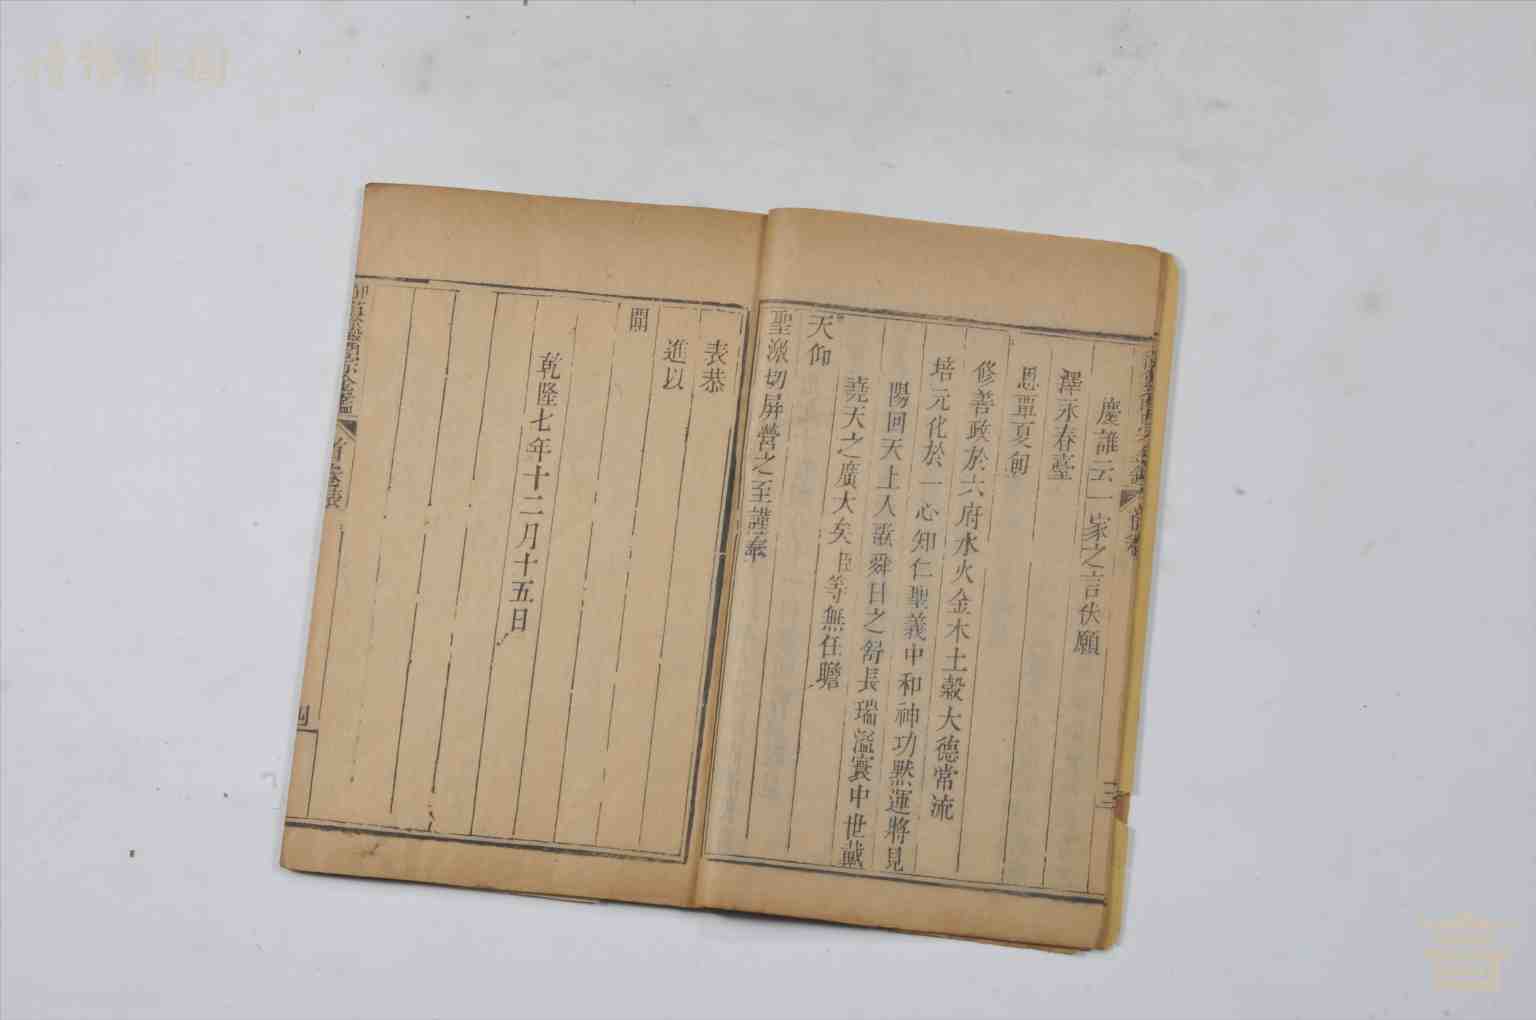 慶誰云一家之言伏願
澤永春臺
恩覃夏甸
修善政於六府水火金木土穀大德常流
培元化於一心知仁聖義中和神功默運將見
陽回天上人歌舜日之舒長瑞溢寰中世戴
堯天之廣大矣臣等無任瞻
天仰
聖激切屏營之至謹奉
表恭
進以
聞
乾隆七年十二月十五日
御纂醫宗金鑑
首卷表
四
首卷
三